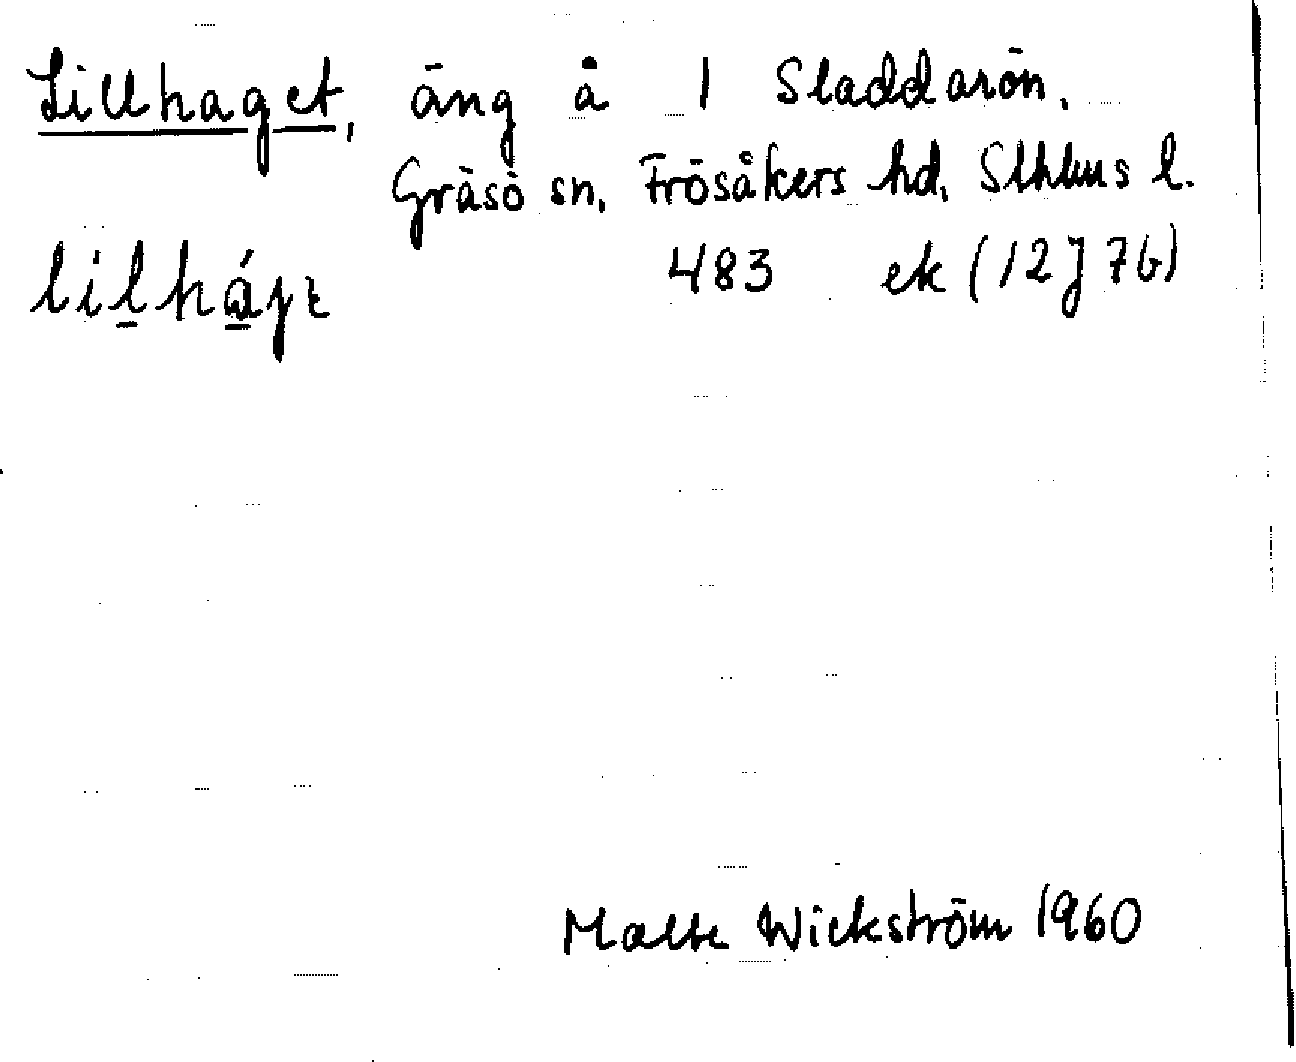 Lillhaget, äng å 1 Sladdarön.
Gräsö sn. Frösåkers hd. Sthlms l.
lilháγε 483 ek (12J7b)
Malte Wickström 1960